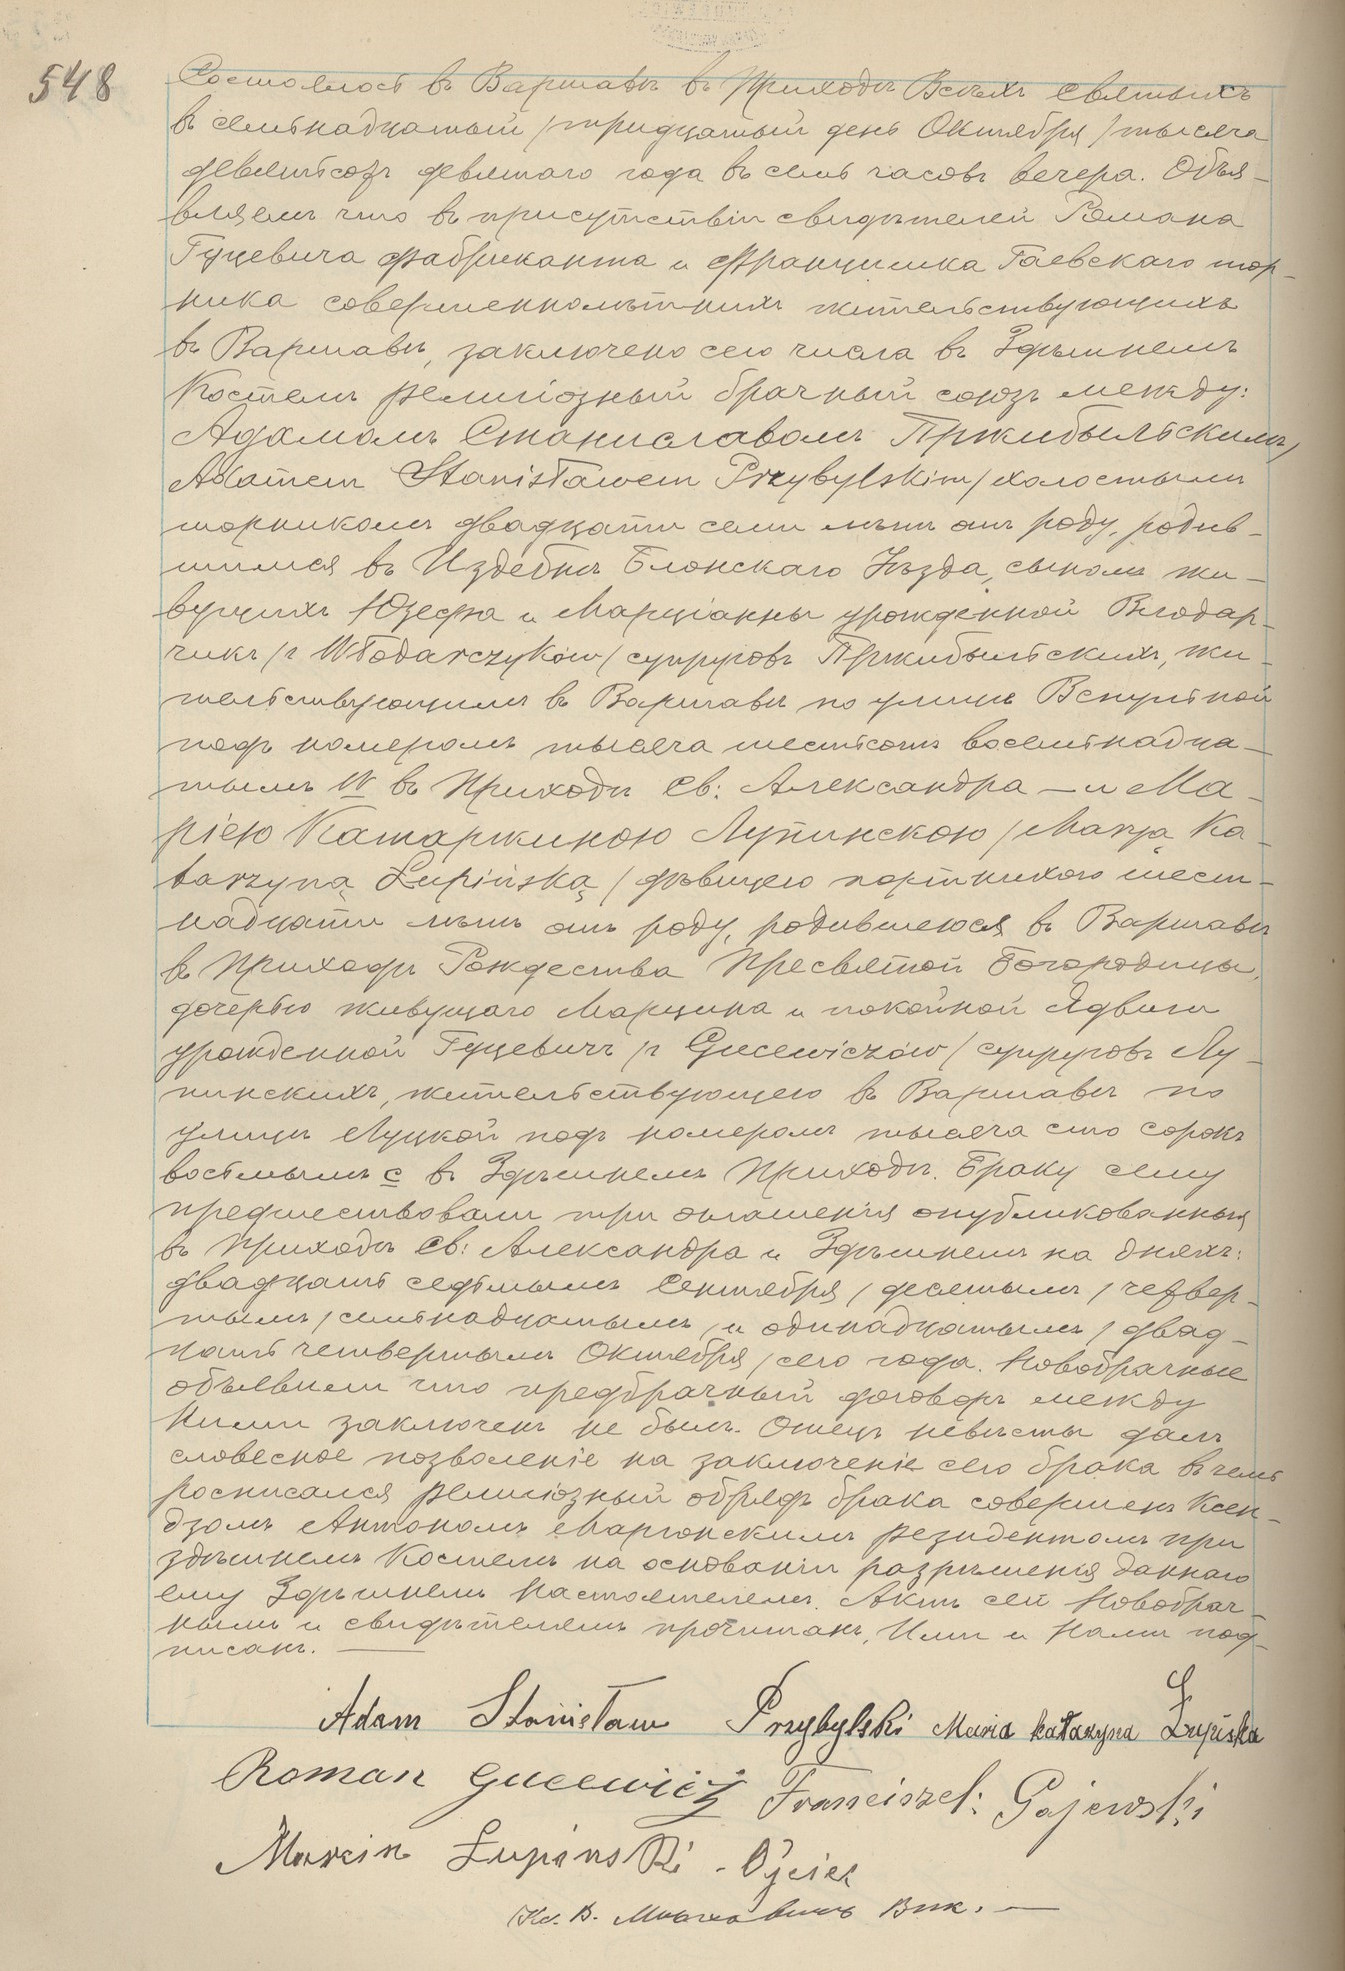 548
Состоялось въ Варшавѣ въ Приходѣ Всѣхъ Святыхъ
въ семьнадцатый /тридцатый день Октября/ тысяча
девятьсотъ девятаго года въ семь часовъ вечера. Объя-
вляемъ что въ присутствіи свидѣтелей Романа
Гуцевича фабриканта и Францишка Гаевскаго тор-
ника совершеннолѣтнихъ жительствующихъ
въ Варшавѣ, заключено сего числа въ Здѣшнемъ
Костелѣ религіозный брачный союзъ между:
Адамомъ Станиславомъ Пржибыльскимъ/
Adamem Stanisławem Przybylskim/ холостымъ
торникомъ двадцати семи лѣтъ отъ роду, родив-
шимся въ Издебнѣ Блонскаго Уѣзда, сыномъ жи-
вущихъ Юзефа и Марціанны урожденной Влодар-
чикъ /z Włodarczyków/ супруговъ Пржибыльскихъ, жи-
тельствующимъ въ Варшавѣ по улицѣ Вспульной
подъ номеромъ тысяча шестьсотъ восемьнадца-
тымъ IV въ Приходѣ Св: Александра — и Ма-
ріею Катаржиною Лупинскою /Maryą Ka-
tarzyną Łupińską/ дѣвицею портнихою шест-
надцати лѣтъ отъ роду, родившеюся въ Варшавѣ
въ Приходѣ Рождества Пресвятой Богородицы,
дочерью живущаго Марцина и покойной Ядвиги
урожденной Гуцевичъ /z Gucewiczów/ супруговъ Лу-
пинскихъ, жительствующею въ Варшавѣ по
улицѣ Луцкой подъ номеромъ тысяча сто сорокъ
восьмымъ с въ Здѣшнемъ Приходѣ. Браку сему
предшествовали три оглашенія опубликованныя
въ Приходѣ Св: Александра и Здѣшнемъ на дняхъ:
двадцать седьмымъ Сентября /десятымъ/, четвер-
тымъ /семьнадцатымъ/ и одинадцатымъ /двад-
цать четвертымъ Октября/ сего года. Новобрачные
объявили что предбрачный договоръ между
ними заключенъ не былъ. Отецъ невѣсты далъ
словесное позволеніе на заключеніе сего брака въ чемъ
росписался религіозный обрядъ брака совершенъ Ксен-
дзомъ Антономъ резидентомъ при
здѣшнемъ Костелѣ на основаніи разрѣшенія даннаго
ему Здѣшнемъ Настоятелемъ. Актъ сей Новобрач-
нымъ и свидѣтелямъ прочитанъ, Ими и Нами под-
писанъ. —
Adam Stanisław Przybylski Maria Katarzyna Łupiska
Roman Gucewicz Franciszek Gajewski
Marcin Łupinski - Ojciec
Кс. В. Вик. —